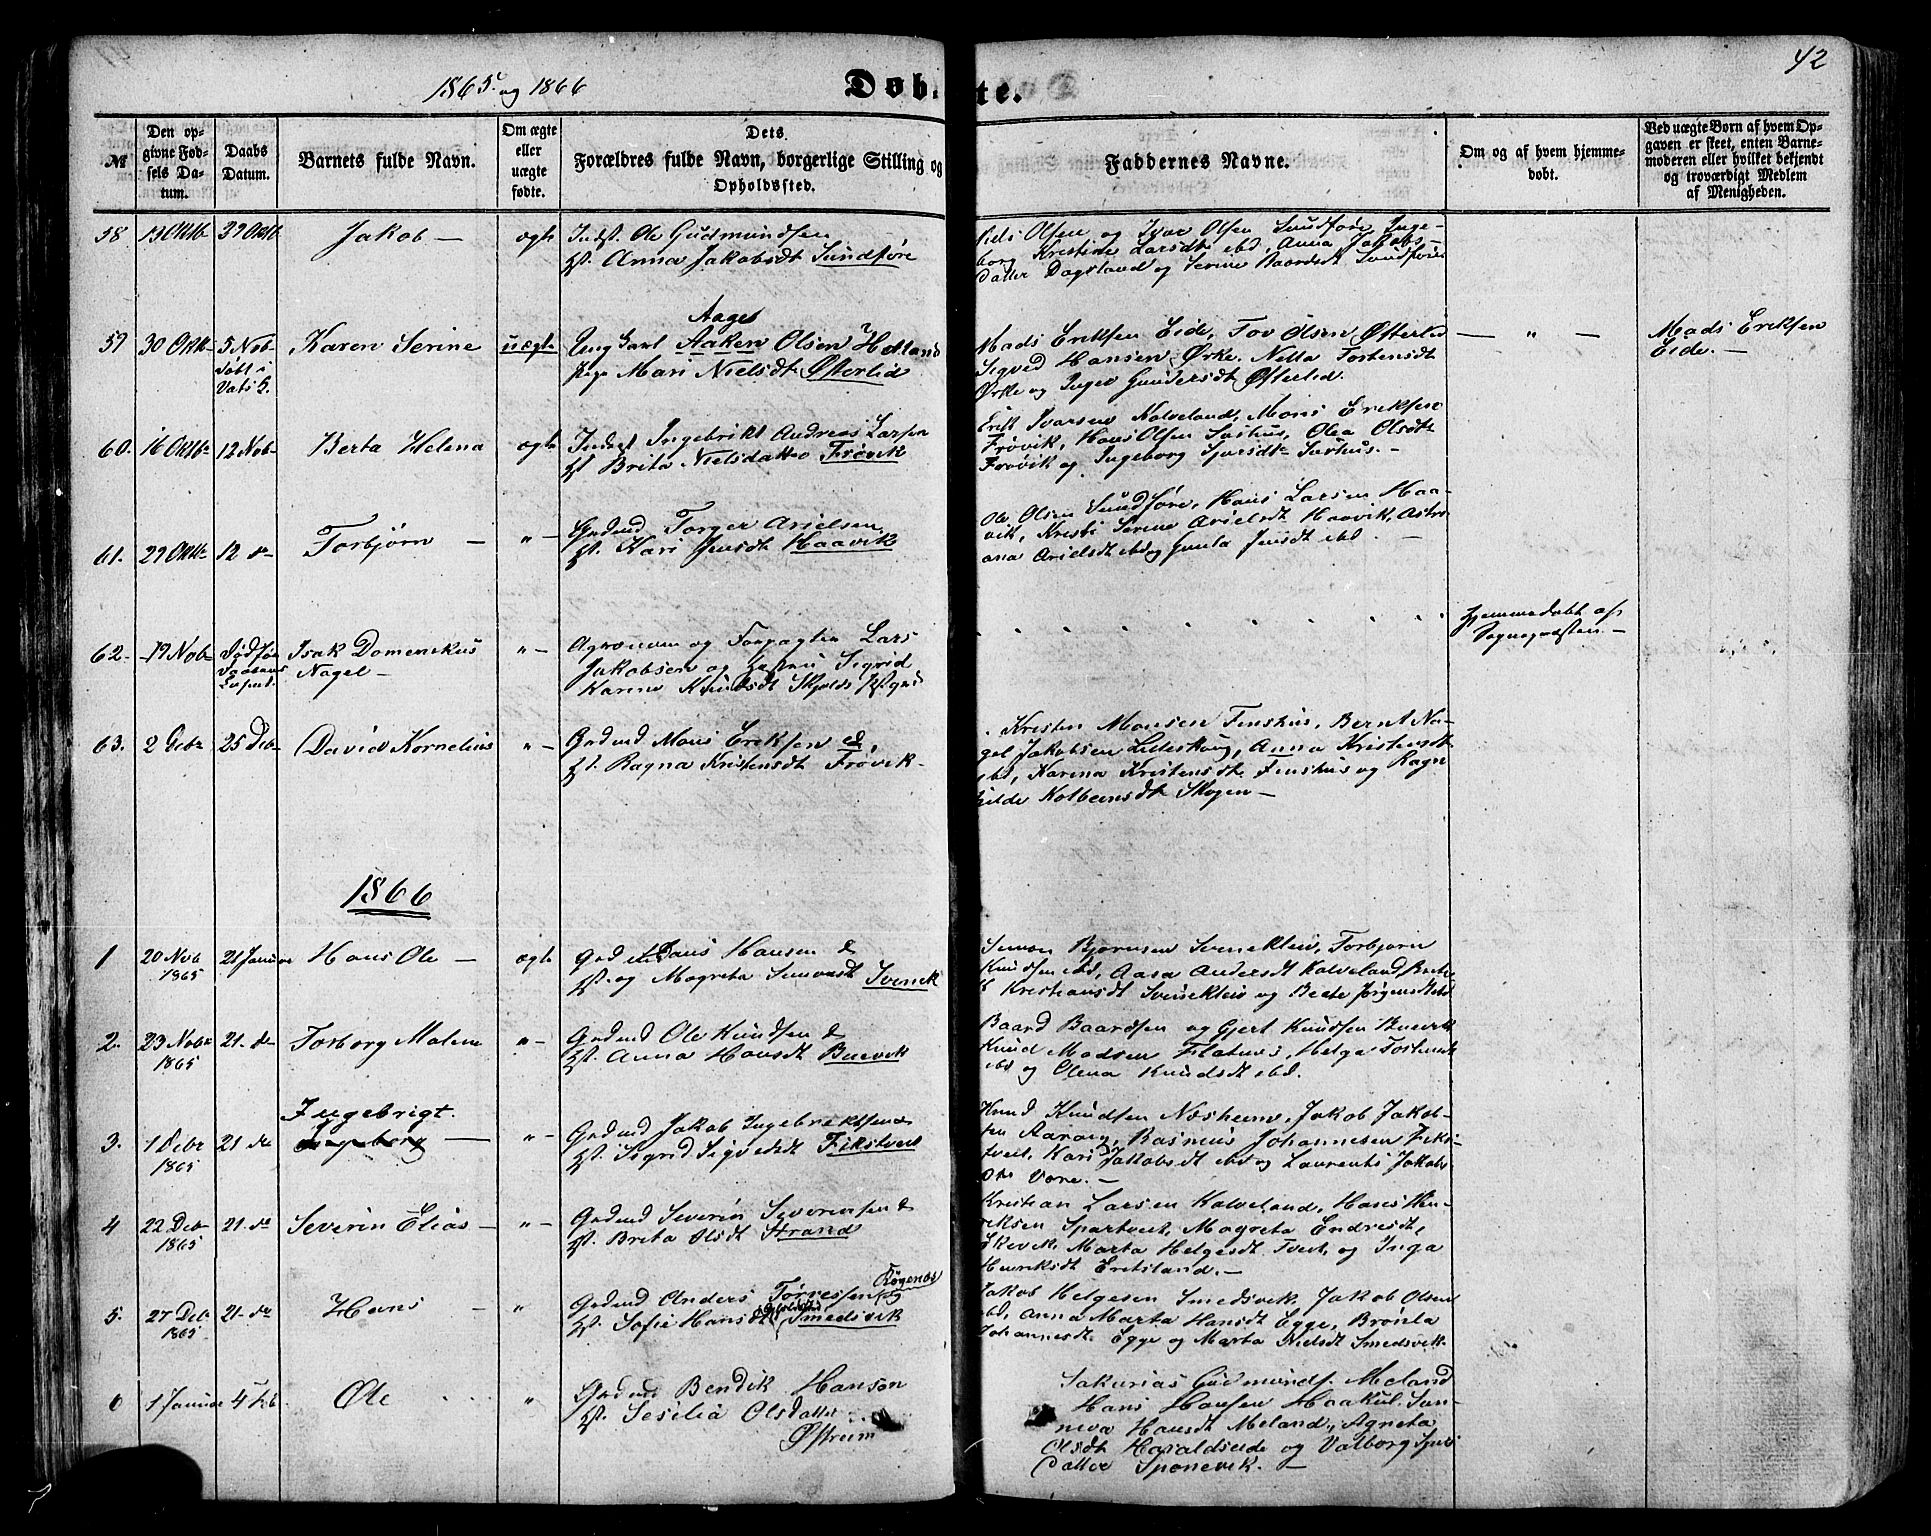 42
1865 og 1866
Døbte.
№
Den opgivne Fødsels Datum.
Daabs Datum.
Barnets fulde Navn.
Om ægte eller uægte fødte.
Dets Forældres fulde Navn, borgerlige Stilling og Opholdssted.
Faddernes Navne.
Om og af hvem hjemmedøbt.
Ved uægte Børn af hvem Opgaven er skeet, enten Barnemoderen eller hvilket bekjendt og troværdigt Medlem af Menigheden.
58
Jakob —
ægte
Indst. Ole Gudmundsen
H. Anna Jakobsdt Sundføre
Niels Olsen og Ivar Olsen Sundføre, Inge-
borg Kristine Larsdt ibd, Anna Jakobs-
datter Dagsland og Serine Baardsdt Sundføre
59
30 Oktb
5 Nov
døbt i
Vats K.
Karen Serine
uægte
Aages
Ung Karl Aaken Olsen Hetland
Pige Mari Nielsdt Østerlid
Mads Eriksen Eide, Tov Olsen Østerlid
Sigved Hansen Ørke. Netta Torkensdt
Ørke og Inger Gundersdt Østerlid.
— „ —
Mads Eriksen
Eide. —
60.
16 Oktb
12 Nob
Berta Helena
ægte
Indst Ingebrikt Andreas Larsen
H Brita Nielsdatter Frøvik
Erik Ivarsen Kalveland, Mons Eriksen
Frøvik, Hans Olsen Sørhus, Olea Olsdt
Frøvik og Ingeborg Sjursdt Sørhus. —
61.
29 Oktb
12 do
Torbjørn —
„ —
Grdmd Torger Arielsen
H. Kari Jensdt Haavik
Ole Olsen Sundføre, Hans Larsen Haa-
vik, Kristi Serine Arielsdt Haavik, Astri
Anna Arielsdt ibd og Gunla Jensdt ibd —
62.
19 Nob
Isak Domenikus
Nagel —
„ —
Agronom og Forpagter Lars
Jakobsen og Hustru Sigrid
Karine Knudsdt Skjolds Pstgrd
Hjemmedøbt af
Sognepræsten. —
63.
2 Debr
25 Deb
David Kornelius
„ —
Grdmd Mons Eriksen &
H. Ragna Kristensdt Frøvik —
Kristen Monsen Tinshus, Bernt Na-
gel Jakobsen Lilleskoug, Anna Kristensdt
ibd, Karina Kristensdt Tinshus og Ragn
hilde Kolbeensdt Skogen —
1866
1
20 Nob
1865
21 Januar
Hans Ole —
ægte
Grdmd Hans Hansen &
H. og Magreta Simonsdt
Simon Bjørnsen Svenekleiv, Torbjørn
Knudsen ibd, Aasa Andersdt Kalveland,
Kristiansdt Svinekleiv og Beate Jørgensdt ibd
2.
23 Nobr
1865
21. do
Torborg Malene
„ —
Grdmd Ole Knudsen &
H. Anna Hansdt Buevik
Baard Baardsen og Gjert Knudsen Buevik
Knud Madsen Flatnes, Helga Torstensdt
ibd og Olena Knudsdt ibd.
3.
1 Debr
1865
21 do
Ingebrigt.
Ingeborg —
„ —
Grdmd Jakob Ingebrektsen &
H. Sigrid Sigvedsdt Fikstvedt
Knud Knudsen Næsheim, Jakob Jakob-
sen Aarvig, Rasmus Johannesen Fiks-
tveit, Kari Jakobsdt ibd og Laurents Jakobs
Vore. —
4
22 Deb
1865
21. do
Severin Elias —
„ —
Grdmd Severin Severinsen &
H. Brita Olsdt Strand
Kristian Larsen Kalveland, Hans Hen-
riksen Spartveit, Magreta Endresdt,
Ekevik, Marta Helgesdt Tveit, og Inga
Henriksdt Eretsland. —
5.
27 Deb
1865
21. do
Hans —
„
Røgenæs
Grdmd Anders Tørressen og
H. Sofie Hansdt Smedsvik
Jakob Helgesen Smedsvik, Jakob Olsen
ibd, Anna Marta Hansdt Egge, Brønla
Johannesdt Egge og Marta Nielsdt Smedsvik.
6
1 Januar
4 Feb.
Ole
„
Grdmd Bendik Hansen
H. Sesilia Olsdatter
Østreim
Sakarias Gudmunds. Meland
Hans Hansen Haakul, Sun-
neva Hansdt Meland, Agneta
Olsdt Haraldseide og Valborg Sjurs
datter Sponevik. —